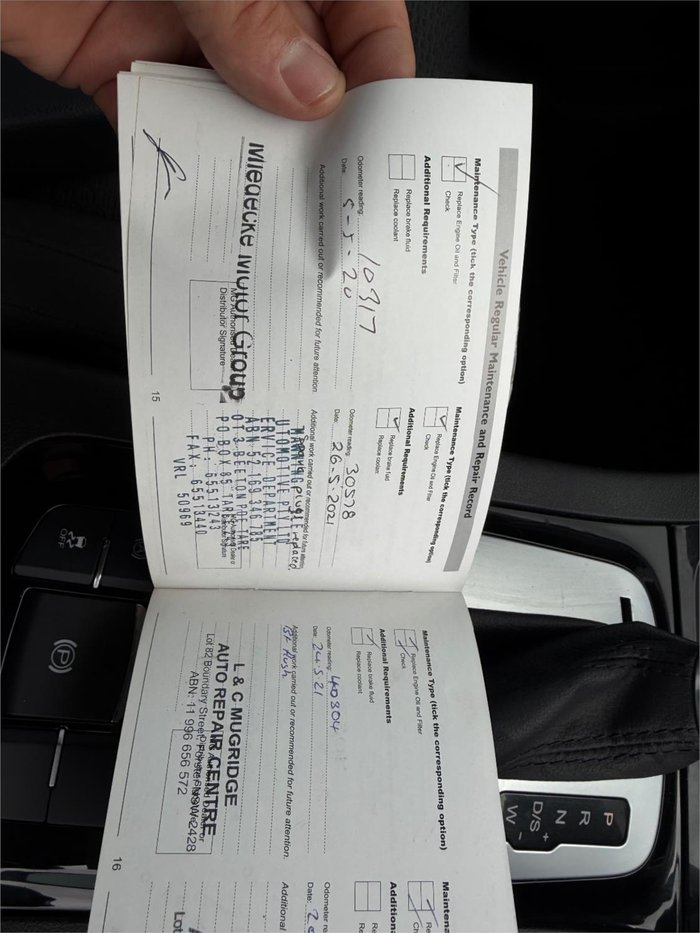 Vehicle Regular Maintenance and Repair Record
Maintenance Type (tick the corresponding option)
Replace Engine Oil and Filter
Check
Additional Requirements
Replace brake fluid
Replace coolant
Odometer reading: 10317
Date: 5-5-20
Additional work carried out or recommended for future attention
Miedecke Motor Group
Distributor Signature
15
Maintenance Type (tick the corresponding option)
Replace Engine Oil and Filter
Check
Additional Requirements
Replace brake fluid
Replace coolant
Odometer reading: 30578
Date: 26.5.2021
Additional work carried out or recommended for future attention
plugs replaced
UTOMOTIVE PTY
ERVICE DEPARTMENT
ABN 52 169 546 785
BEETON PDE TARE
PO BOX 85 TAR
PH: 65513243
FAX: 65513440
VRL 50969
Maintenance Type (tick the corresponding option)
Replace Engine Oil and Filter
Check
Additional Requirements
Replace brake fluid
Replace coolant
Odometer reading: 40304
Date: 24.5.21
Additional work carried out or recommended for future attention.
flush
L & C MUGRIDGE
AUTO REPAIR CENTRE
Lot 82 Boundary Street, Forster NSW 2428
ABN: 11 996 656 572
16
Maintenan
Re
Ch
Addition
Re
Re
Odometer re
Date: 2
Additional
Lot
OFF
P
P
R
N
D/S
+
W
-